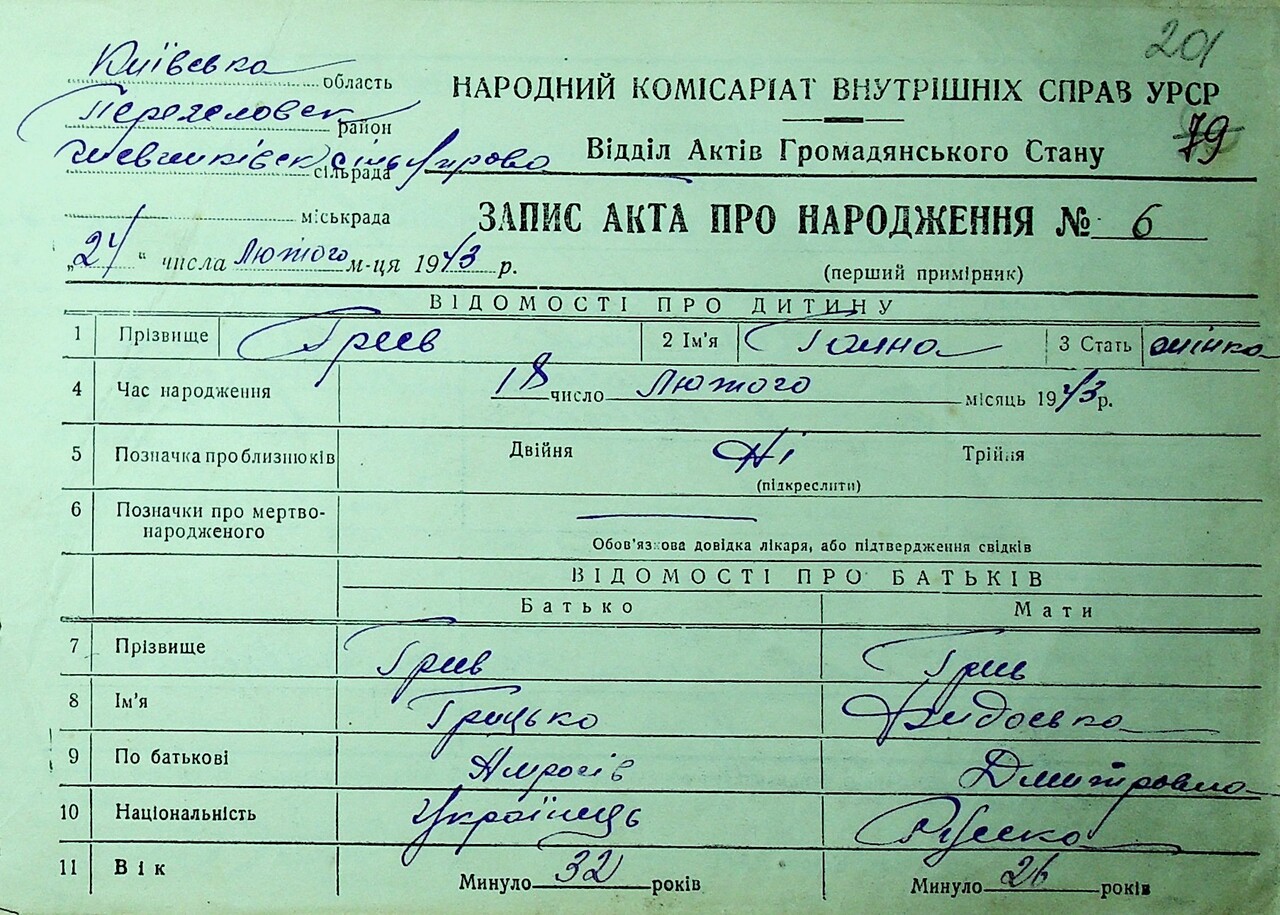 201
Київська область
НАРОДНИЙ КОМІСАРІАТ ВНУТРІШНІХ СПРАВ УРСР
район
79
Відділ Актів Громадянського Стану
сільрада
міськрада
ЗАПИС АКТА ПРО НАРОДЖЕННЯ № 6
„24“ числа Лютого м-ця 1943 р.
(перший примірник)
ВІДОМОСТІ ПРО ДИТИНУ
1 Прізвище Греев 2 Ім'я Ганна 3 Стать жінка
4 Час народження 18 число Лютого місяць 1943 р.
5 Позначка про близнюків Двійня Ні Трійня
(підкреслити)
6 Позначки про мертво-
народженого
Обов'язкова довідка лікаря, або підтвердження свідків
ВІДОМОСТІ ПРО БАТЬКІВ
Батько Мати
7 Прізвище
8 Ім'я Грицько
9 По батькові Дмитровна
10 Національність Українець Руска
11 Вік Минуло 32 років Минуло 26 років